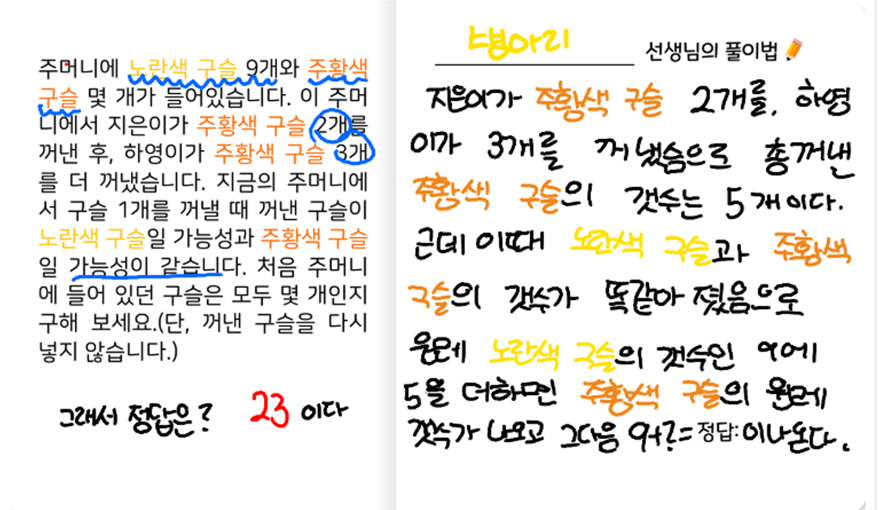 주머니에 노란색 구슬 9개와 주황색
구슬 몇 개가 들어있습니다. 이 주머
니에서 지은이가 주황색 구슬 2개를
꺼낸 후, 하영이가 주황색 구슬 3개
를 더 꺼냈습니다. 지금의 주머니에
서 구슬 1개를 꺼낼 때 꺼낸 구슬이
노란색 구슬일 가능성과 주황색 구슬
일 가능성이 같습니다. 처음 주머니
에 들어 있던 구슬은 모두 몇 개인지
구해 보세요.(단, 꺼낸 구슬을 다시
넣지 않습니다.)
그래서 정답은? 23 이다
병아리 선생님의 풀이법
지은이가 주황색 구슬 2개를, 하영
이가 3개를 꺼냈슴으로 총꺼낸
주황색 구슬의 갯수는 5개이다.
근데 이때 노란색 구슬과 주황색
구슬의 갯수가 똑같아 졌음으로
원레 노란색 구슬의 갯수인 9에
5를 더하면 주황색 구슬의 원레
갯수가 나오고 그다음 9+?=정답:이나온다.